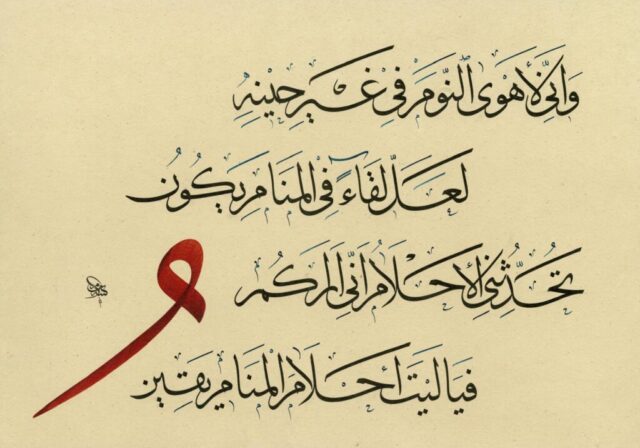 وَإِنِّي لَأَهْوَى النَّوْمَ فِي غَيْرِ حِينِهِ
لَعَلَّ لِقَاءً فِي الْمَنَامِ يَكُونُ
تُحَدِّثُنِي الْأَحْلَامُ أَنِّي أَرَاكُمُ
فَيَا لَيْتَ أَحْلَامَ الْمَنَامِ يَقِينُ
و